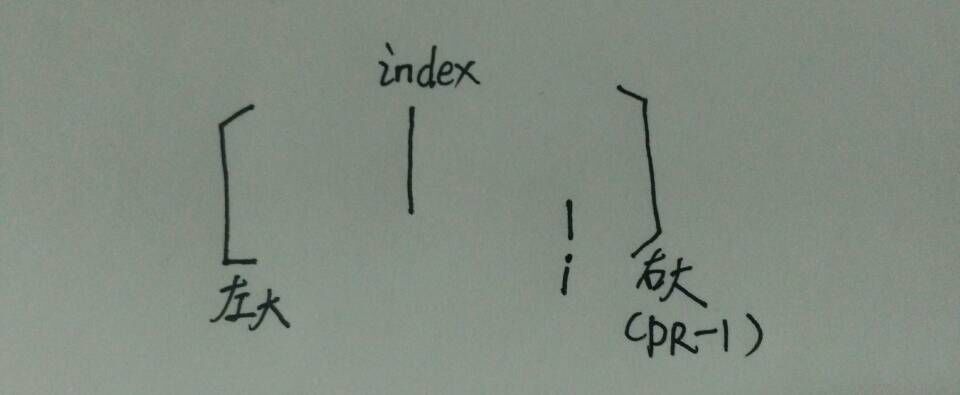 index
i
左大
右大
(PR-1)